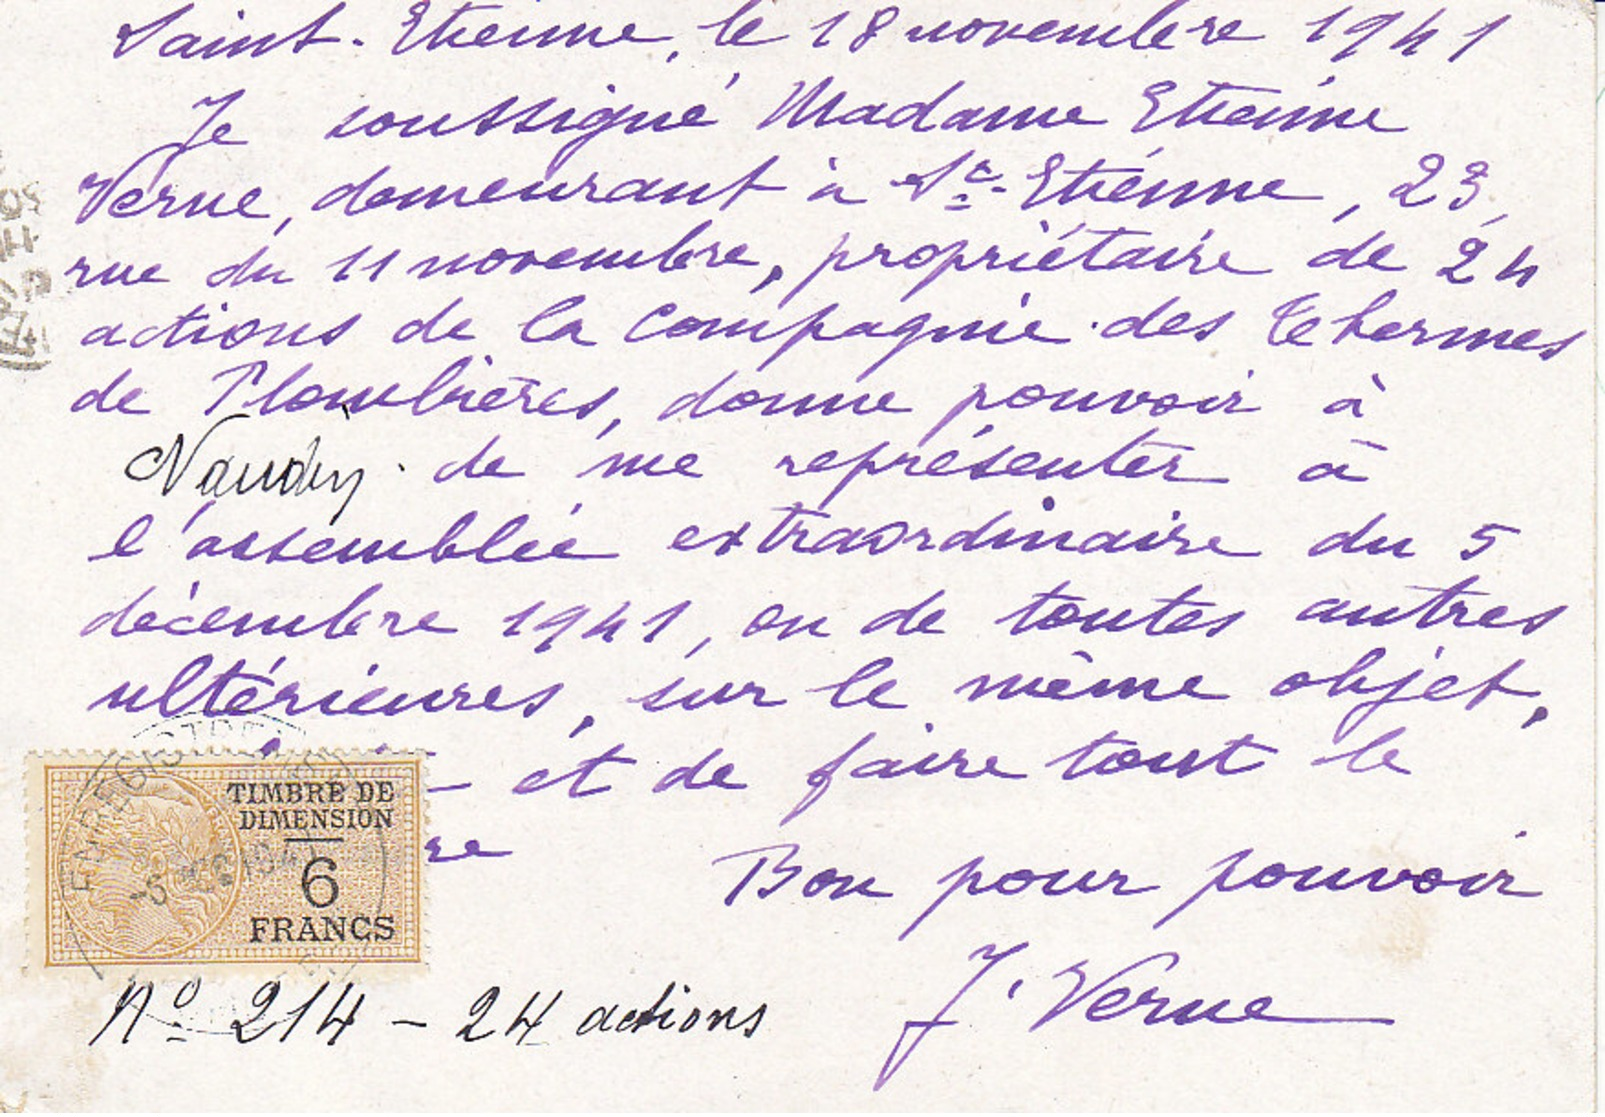 Saint-Etienne, le 18 novembre 1941
Je soussigné Madame Etienne
Verne, demeurant à St-Etienne, 23,
rue du 11 novembre, propriétaire de 24
actions de la Compagnie des Thermes
de Plombières, donne pouvoir à
Naudin de me représenter à
l'assemblée extraordinaire du 5
décembre 1941, ou de toutes autres
ultérieures, sur le même objet,
et de faire tout le
re
TIMBRE DE
DIMENSION
6
FRANCS
Bon pour pouvoir
J. Verne
No 214 - 24 actions